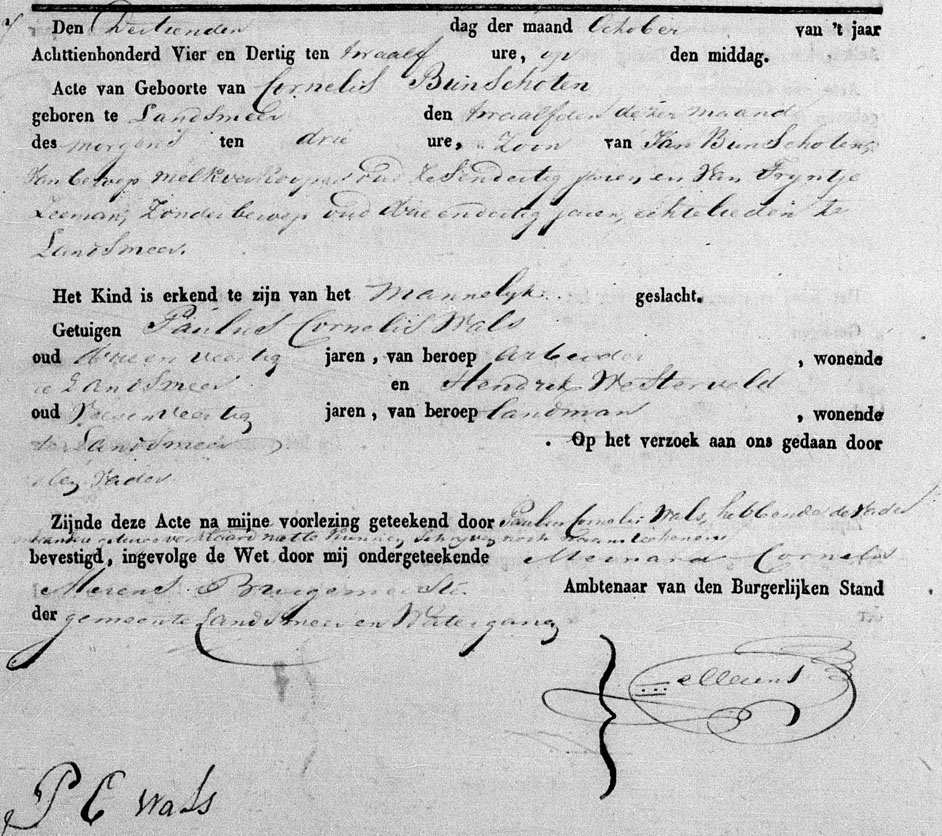 Den Dertienden dag der maand October van 't jaar
Achttienhonderd Vier en Dertig ten twaalf ure, op den middag.
Acte van Geboorte van Cornelis Bunschoten
geboren te Landsmeer den twaalfden dezer maand
des morgens ten drie ure, Zoon van Jan Bunschoten,
van beroep melkverkooper oud zesendertig jaren, en van Tryntje
Zeeman, Zonder beroep oud drie endertig jaren, echtelieden te
Landsmeer.
Het Kind is erkend te zijn van het Mannelyk geslacht.
Getuigen Paulus Cornelis Wals
oud en veertig jaren, van beroep arbeider, wonende
te Landsmeer en Hendrik Westerveld
oud jaren, van beroep Landman, wonende
te Landsmeer. Op het verzoek aan ons gedaan door
den Vader
Zijnde deze Acte na mijne voorlezing geteekend door Paulus Cornelis Wals, hebbende de Vader
en andere getuige verklaard niet te kunnen schryven noch naamteekenen
bevestigd, ingevolge de Wet door mij ondergeteekende Meinard Cornelis
Merens Burgemeester Ambtenaar van den Burgerlijken Stand
der gemeente Landsmeer en Watergang
Merens
P C Wals